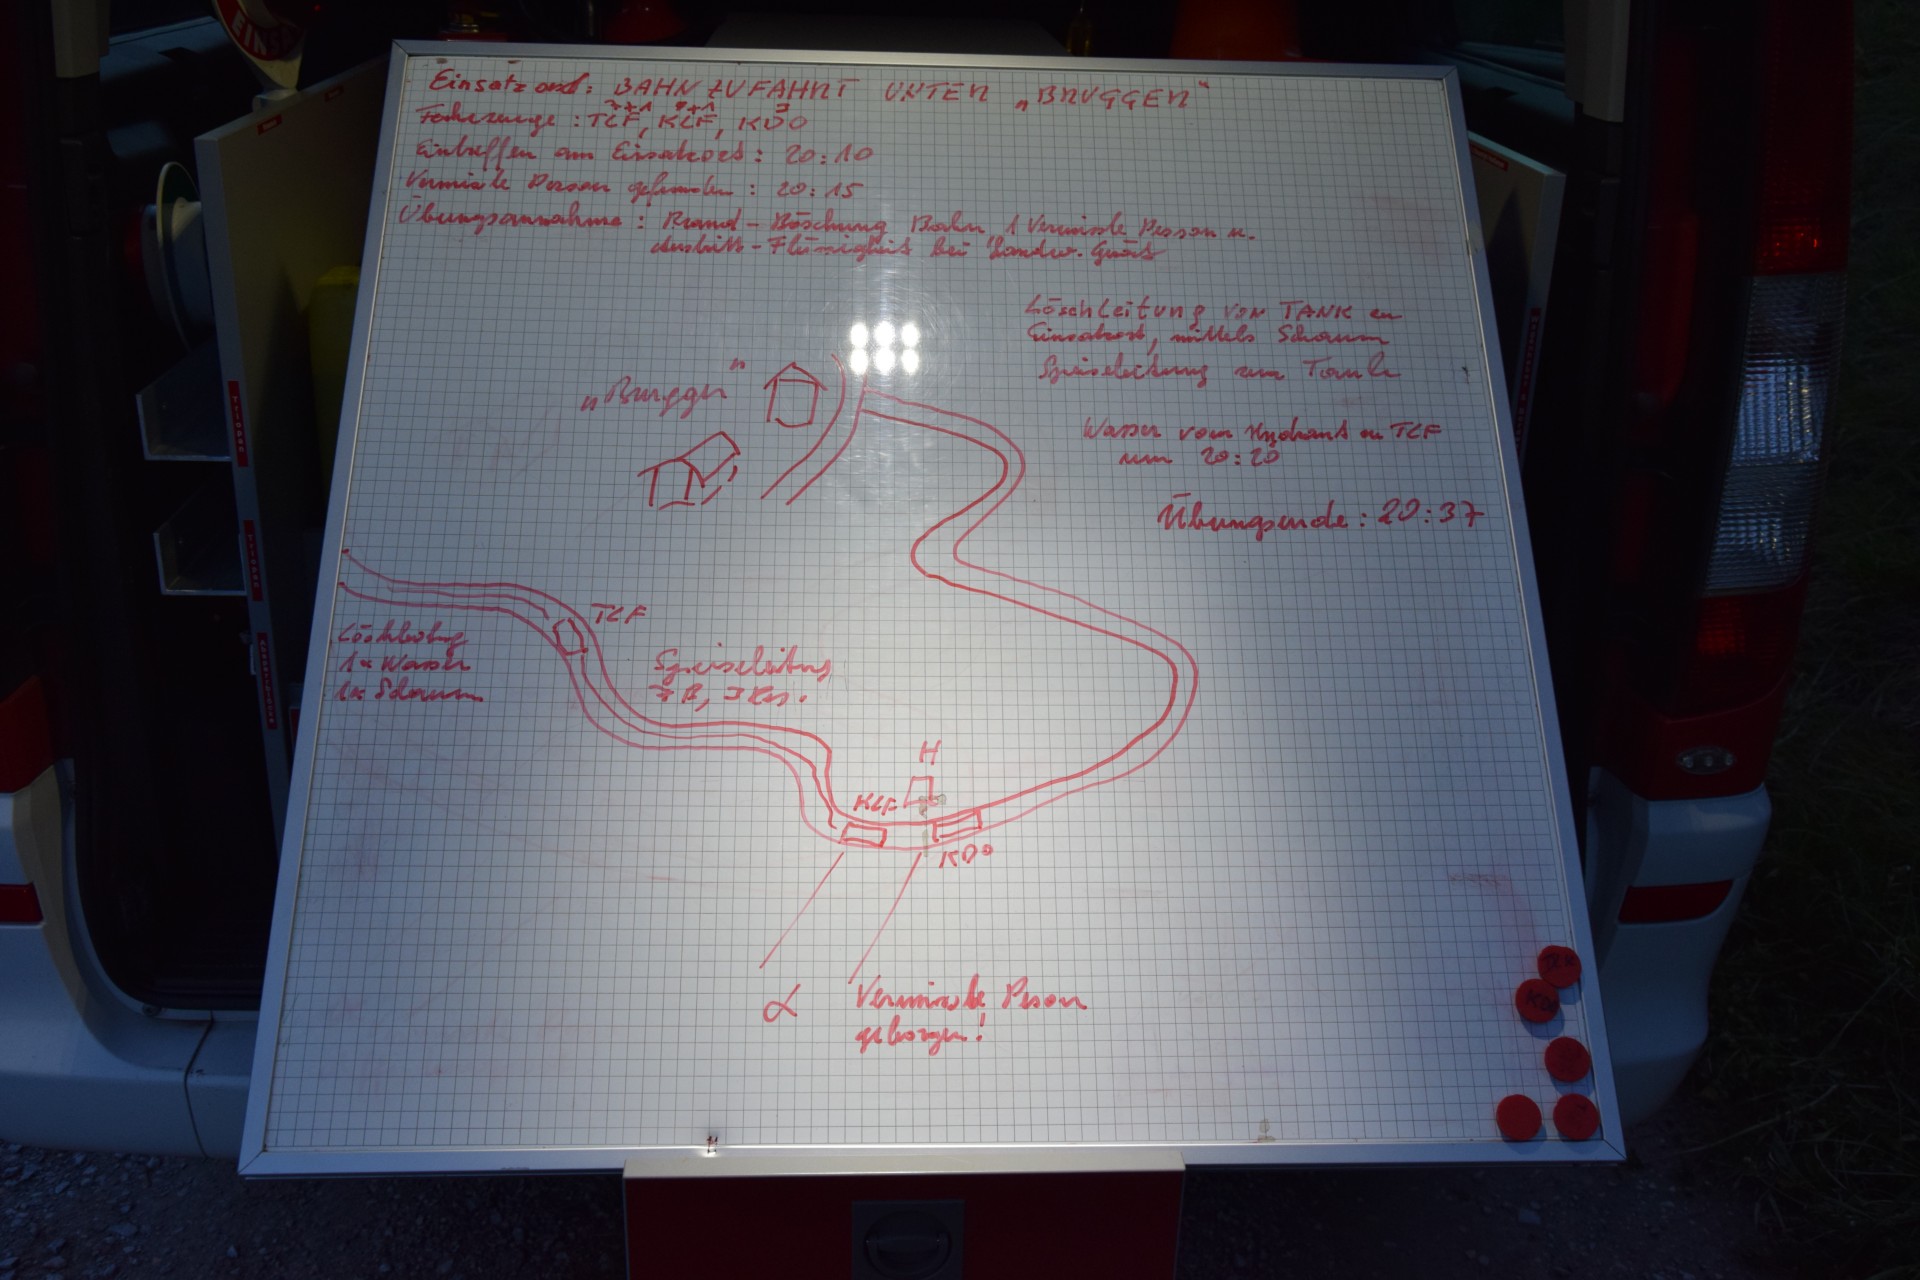 Einsatzort: BAHNZUFAHRT UNTER „BRUGGEN"
7+1 8+1 3
Fahrzeuge: TLF, KLF, KDO
Eintreffen am Einsatzort: 20:10
Vermisste Person gefunden: 20:15
Übungsannahme: Brand-Böschung Bahn 1 Vermisste Person u.
Austritt-Flüssigkeit bei Landw. Gerät
Löschleitung von TANK zu
Einsatzort, mittels Schaum
Speiseleitung zum Tank
„Bruggen"
Wasser vom Hydrant zu TLF
um 20:20
Übungsende: 20:37
TLF
Löschleitung
1x Wasser
1x Schaum
Speiseleitung
7 B,
H
KLF
KDO
Vermisste Person
geborgen!
KDO